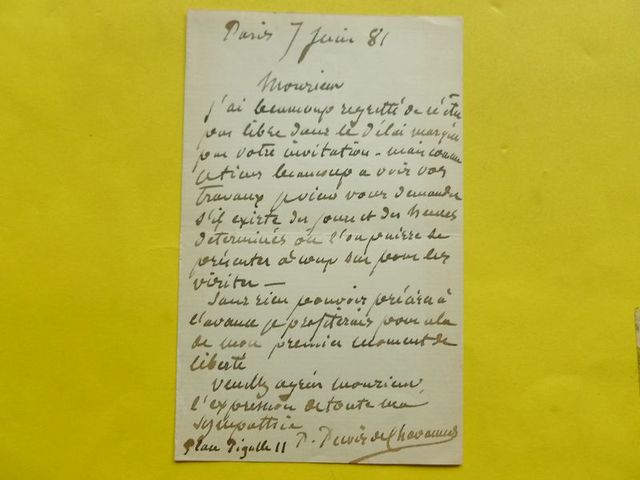 Paris 7 Juin 81
Monsieur
J'ai beaucoup regretté de n'être
pas libre dans le délai marqué
par votre invitation - mais comme
je tiens beaucoup a voir vos
travaux je viens vous demander
s'il existe des jours et des heures
determinés où l'on puisse se
présenter à coup sur pour les
visiter —
Sans rien pouvoir préciser à
l'avance je profiterais pour cela
de mon premier moment de
liberté
Veuillez agréer monsieur
l'expression de toute ma
sympathie
Place Pigalle 11 P. Puvis de Chavannes